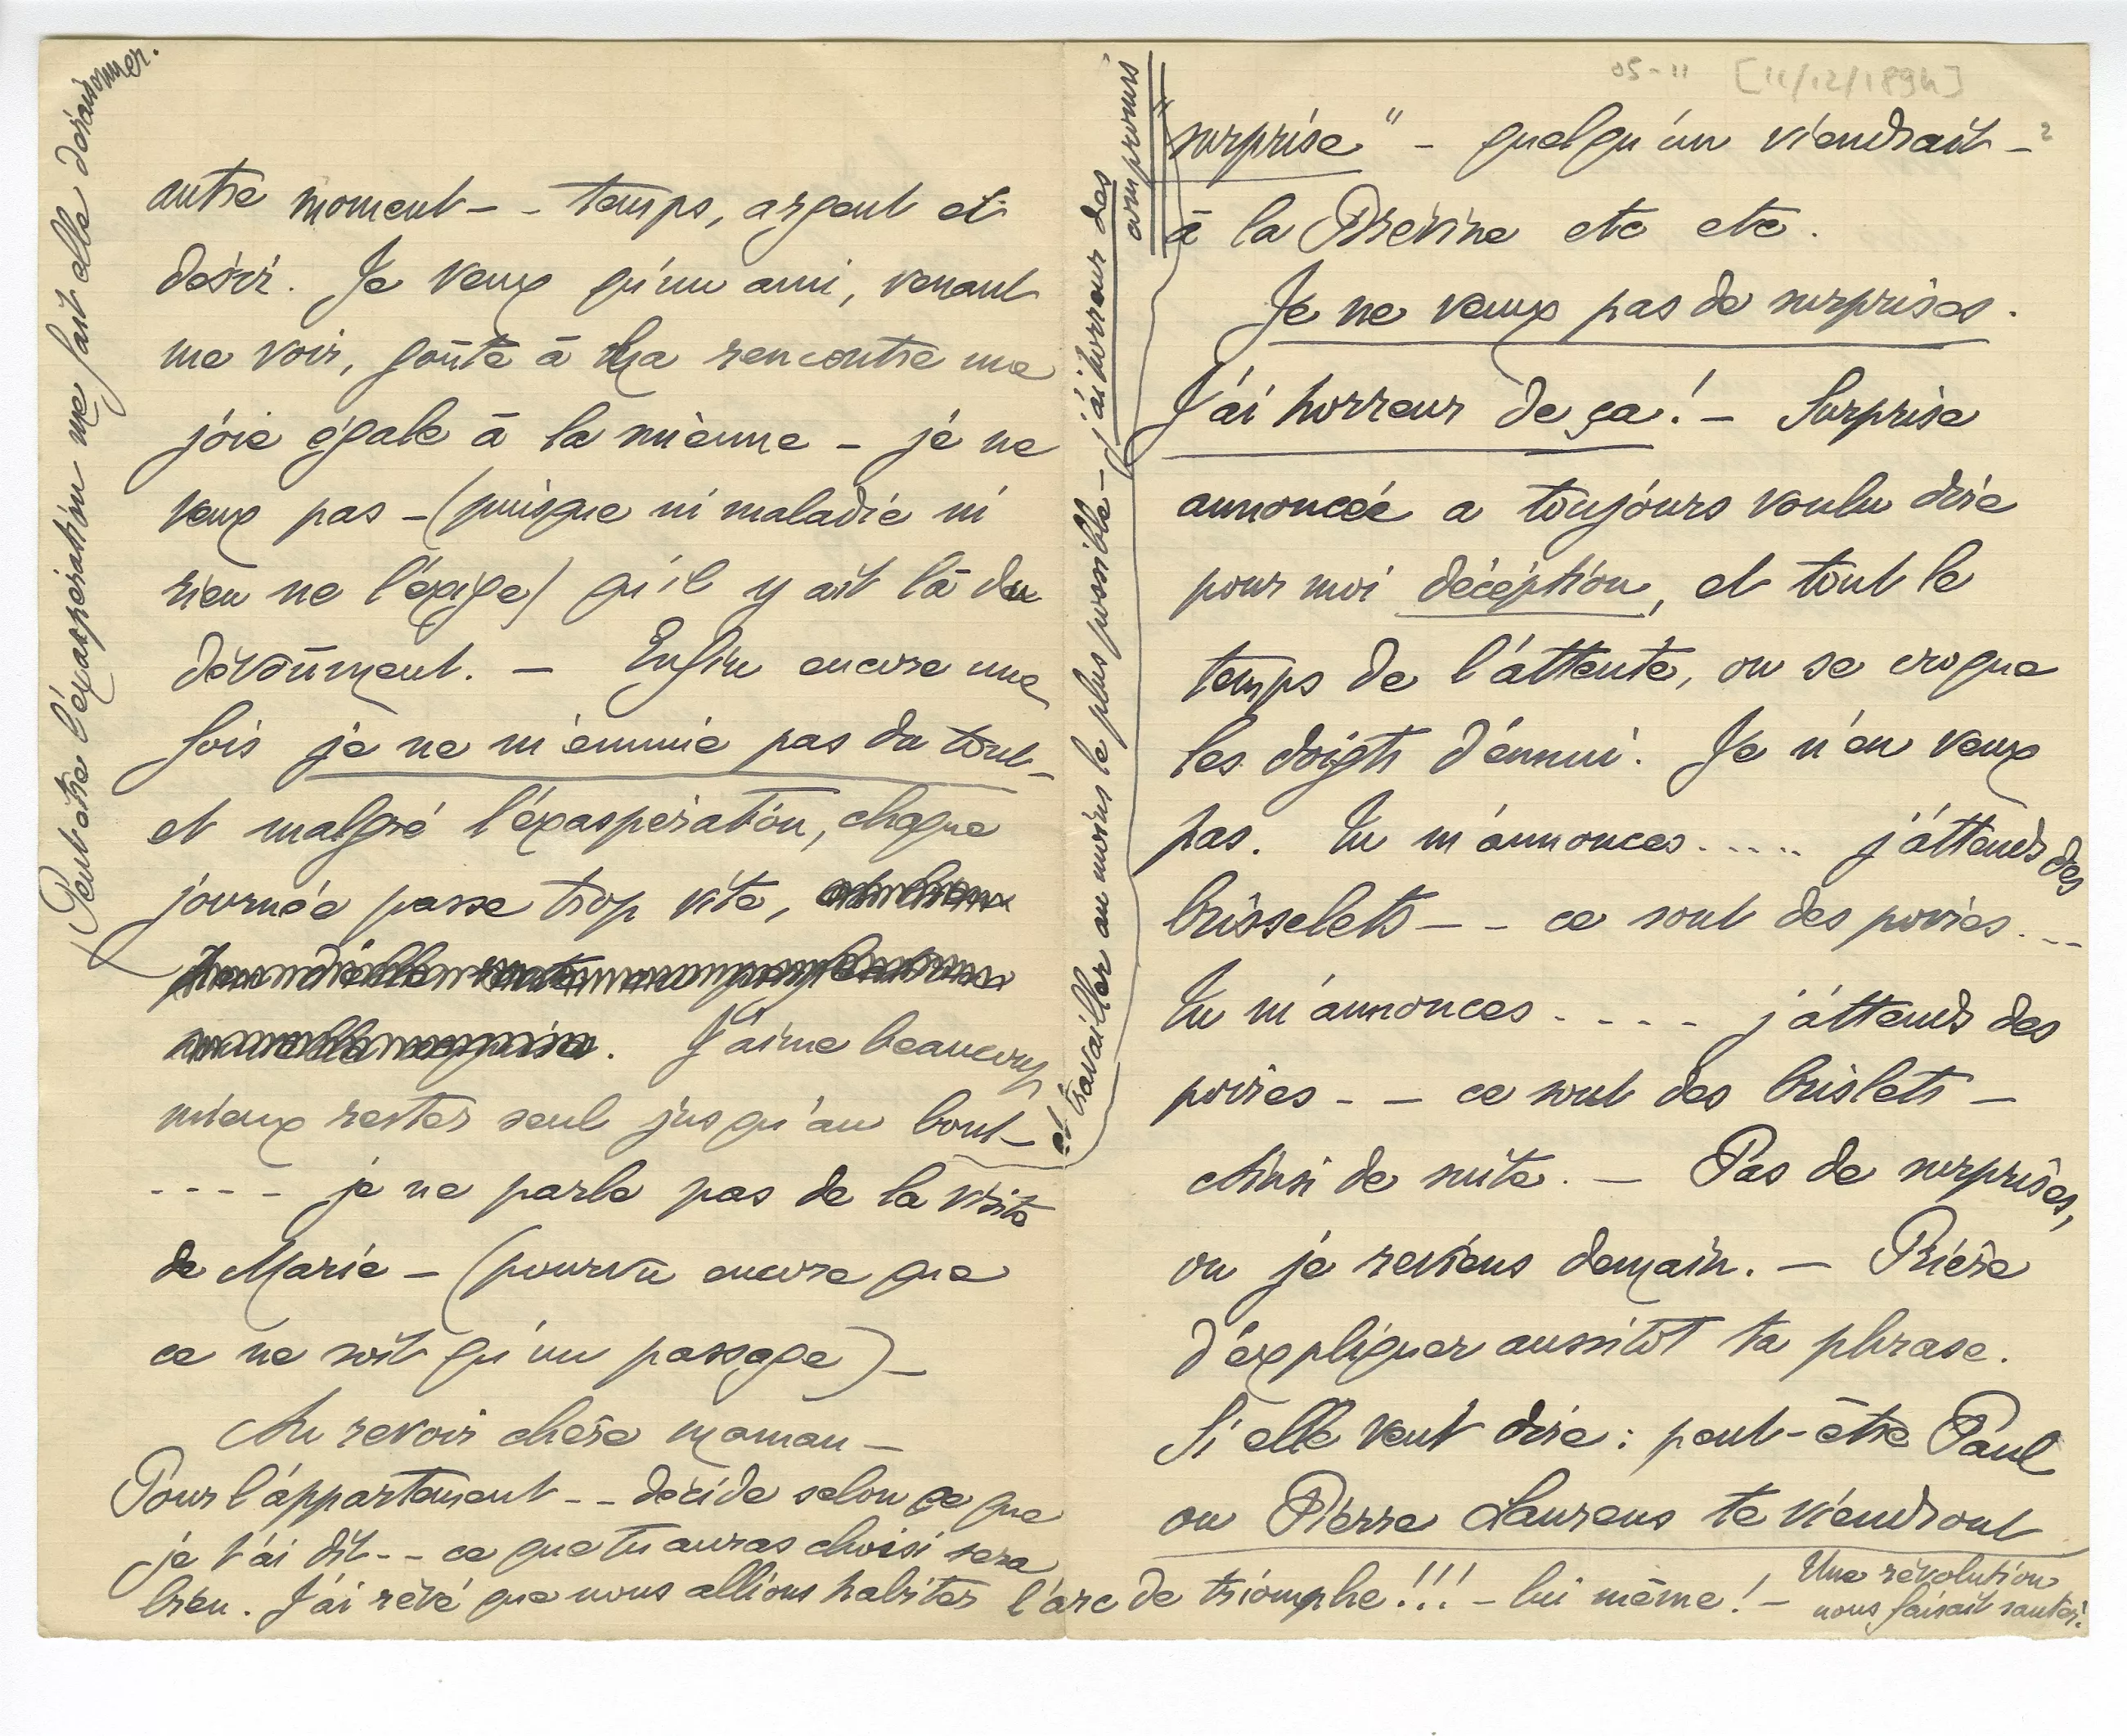 autre moment – – temps, argent et
désir. Je veux qu'un ami, venant
me voir, goûte à ma rencontre une
joie égale à la mienne – je ne
veux pas – (puisque ni maladie ni
rien ne l'exige) qu'il y ait là du
dévoûment. – Enfin encore une
fois je ne m'ennuie pas du tout –
et malgré l'éxaspération, chaque
journée passe trop vite,
. J'aime beaucoup
mieux rester seul jusqu'au bout –
- - - - je ne parle pas de la visite
de Marie – (pourvu encore que
ce ne soit qu'un passage) –
Au revoir chère maman –
Pour l'appartement - - décide selon ce que
je t'ai dit - - ce que tu auras choisi sera
bien. J'ai rêvé que nous allions habiter l'arc de triomphe!!! – lui même! – Une révolution
nous faisait sauter.
(Peut être l'éxaspération me fait elle déraisonner.
et travailler au moins le plus possible – j'ai horreur des
compromis
05-11 [11/12/1894]
2
"surprise" – quelqu'un viendrait –
à la Brévine etc etc.
Je ne veux pas de surprises.
J'ai horreur de ça! – Surprise
annoncée a toujours voulu dire
pour moi décéption, et tout le
temps de l'attente, on se croque
les doigts d'ennui. Je n'en veux
pas. Tu m'annonces ..... j'attends des
brisselets – – ce sont des poires ...
Tu m'annonces - - - - j'attends des
poires - – ce sont des brislets –
Ainsi de suite. – Pas de surprises,
ou je reviens demain. – Prière
d'expliquer aussitôt ta phrase.
Si elle veut dire : peut-être Paul
ou Pierre Laurens te viendront